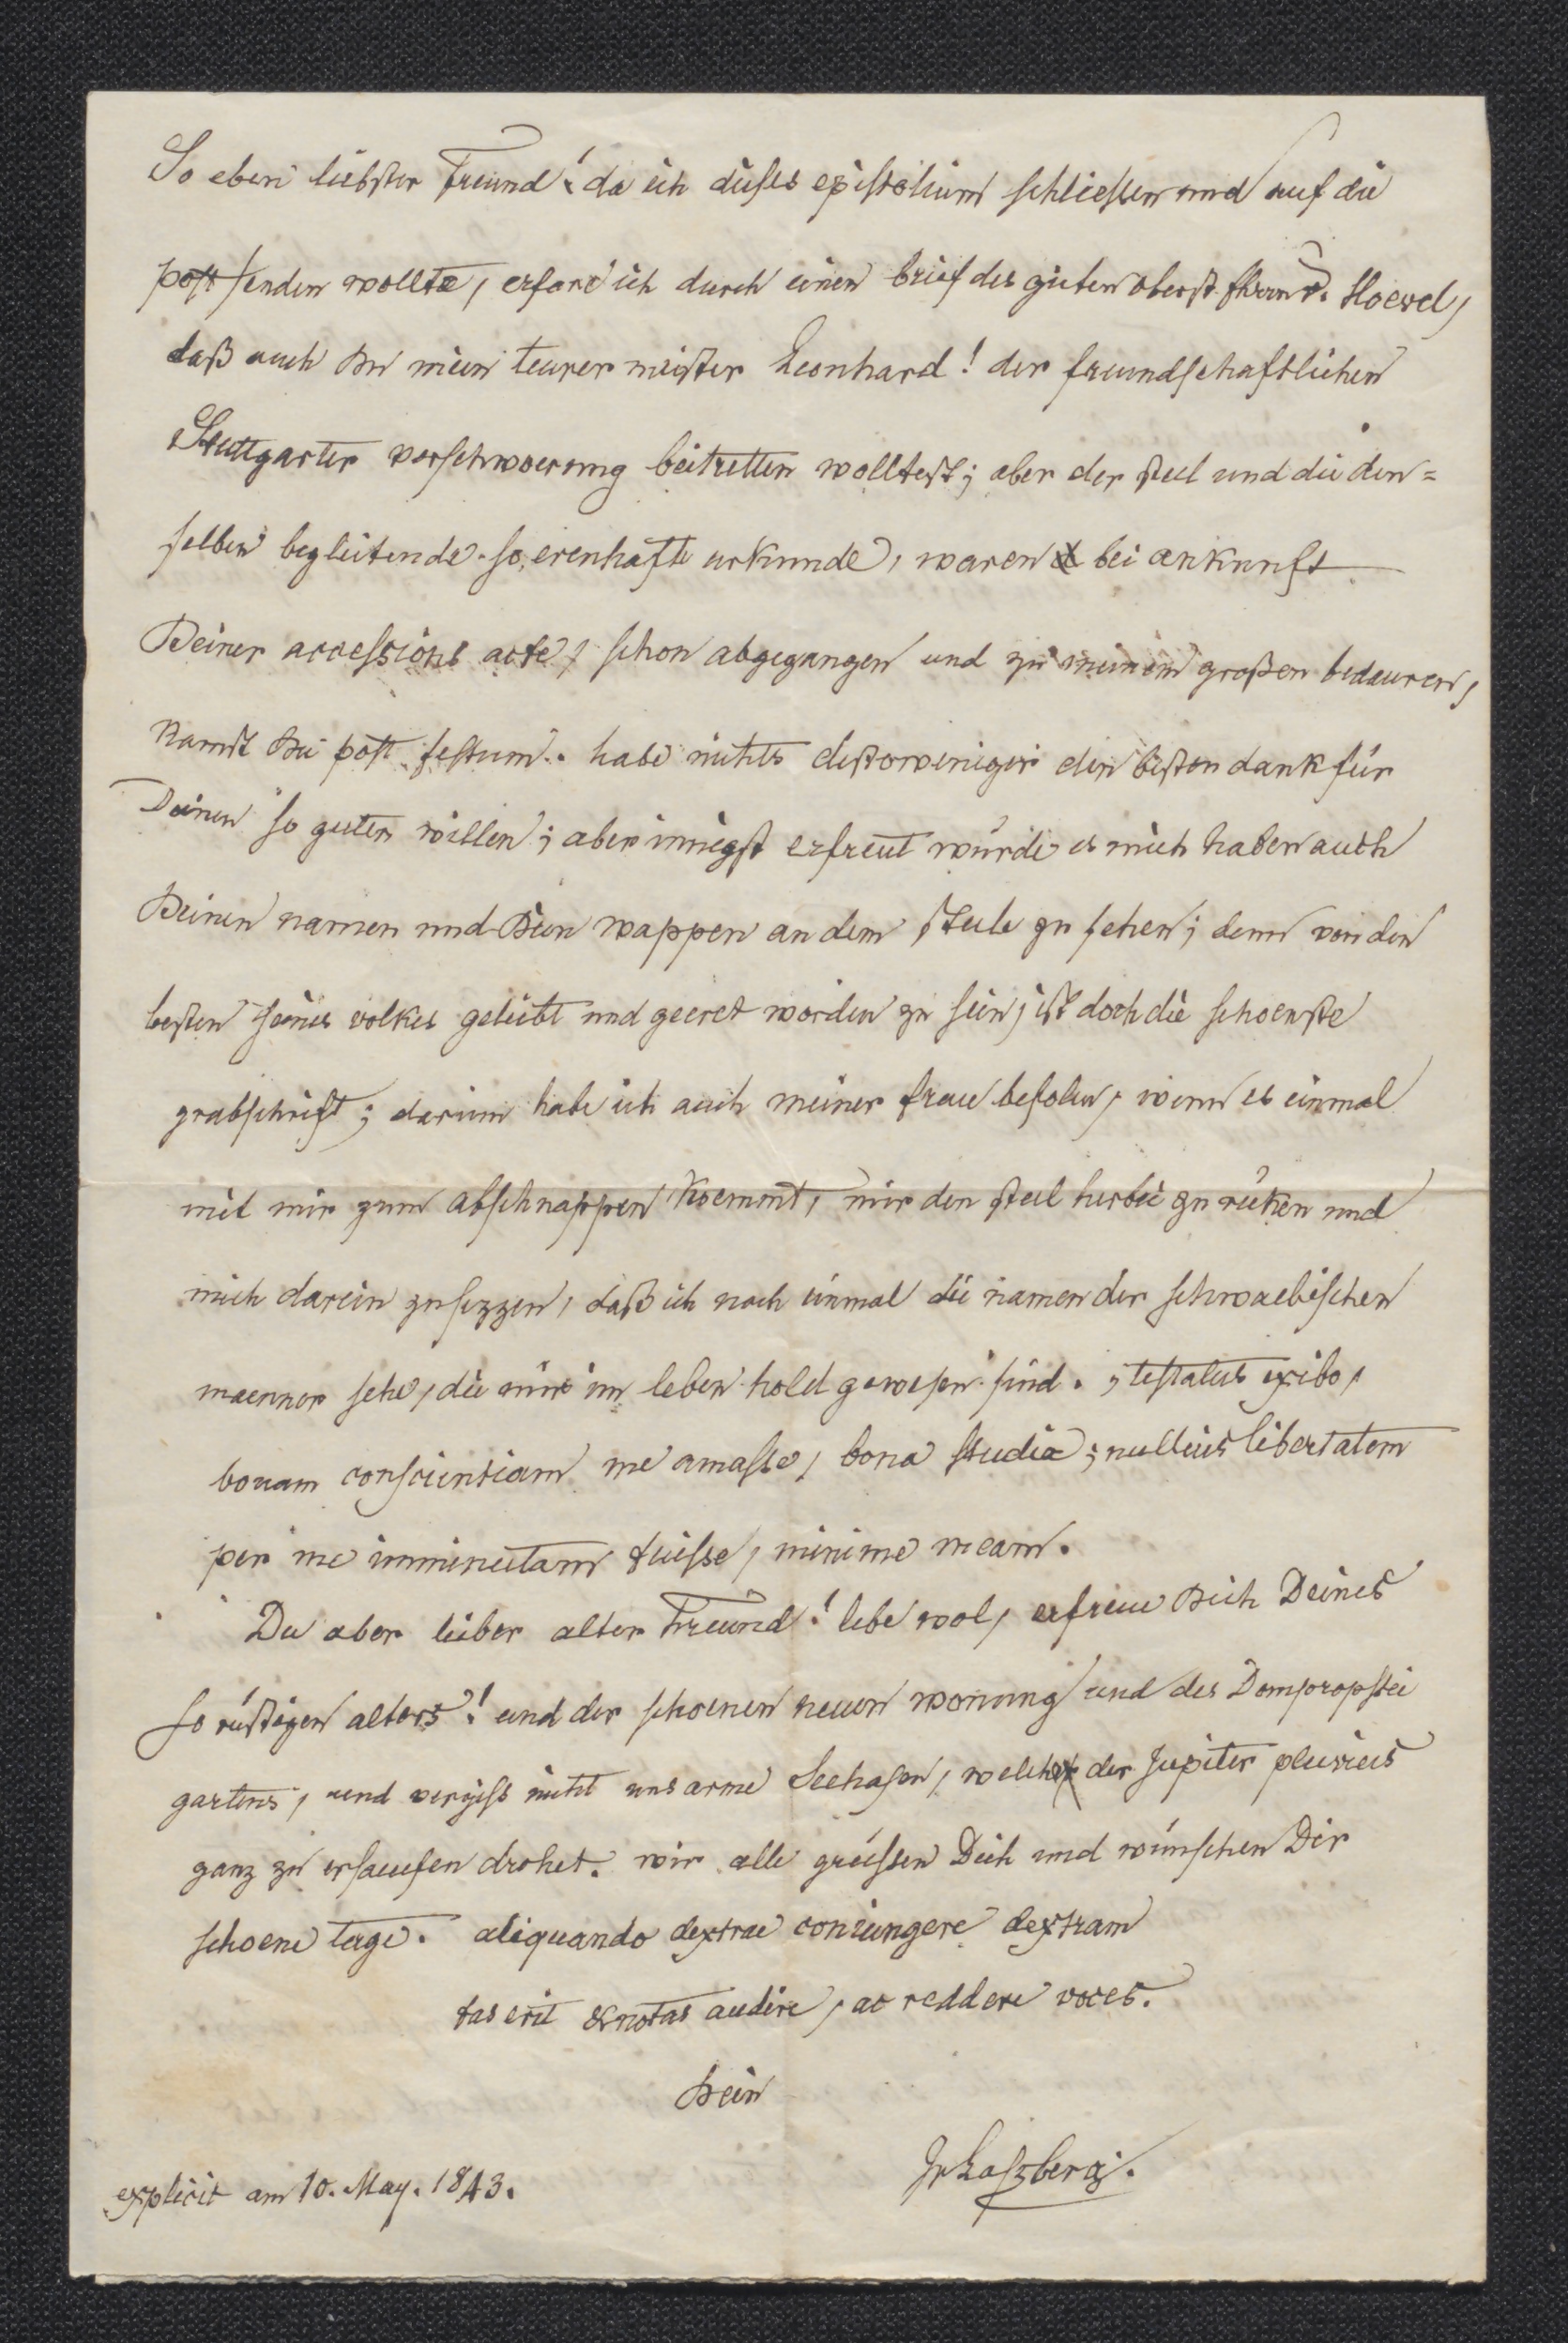 So eben liebster Freund! da ich dieses epistolium schliessen und auf die
post senden wollte, erfare ich durch einen brief des guten oberst fhrrn v. Hoevel,
daß auch Du mein teurer meister Leonhard! der freundschaftlichen
Stuttgarter verschwoerung beitretten wolltest; aber der stul und die den=
selben begleitende so erenhafte urkunde, waren bei ankunft
Deiner accessions acte, schon abgegangen und zu meinem großen bedauren,
kamst Du post festum. habe nichts destoweniger den besten dank für
Deinen so guten willen; aber innigst erfreut würde es mich haben auch
Deinen namen und Dein wappen an dem stule zu sehen; denn von den
besten seines volkes geliebt und geeret worden zu sein, ist doch die schoenste
grabschrift; darum habe ich auch meiner frau befolen, wenn es einmal
mit mir zum abschnappen koemmt, mir den stul herbei zu rüken und
mich darein zu sezzen, daß ich noch einmal die namen der schwaebischen
maenner sehe, die mir im leben hold gewesen sind. testatus exibo,
bonam conscientiam me amasse, bona studia; nullius libertatem
per me imminutam fuisse, minime meam.
Du aber lieber alter Freund! lebe wol, erfreue Dich Deines
so rüstigen alters! und der schoenen neuen wonung und des Dompropstei
gartens, und vergiss nicht uns arme Seehasen, welche der Jupiter pluvius
ganz zu ersaufen drohet. wir alle grüssen Dich und wünschen Dir
schoene tage. aliquando dextrae coniungere dextram
fas erit & notas audire, ac reddere voces.
Dein
JvLaszberg.
explicit am 10. May. 1843.